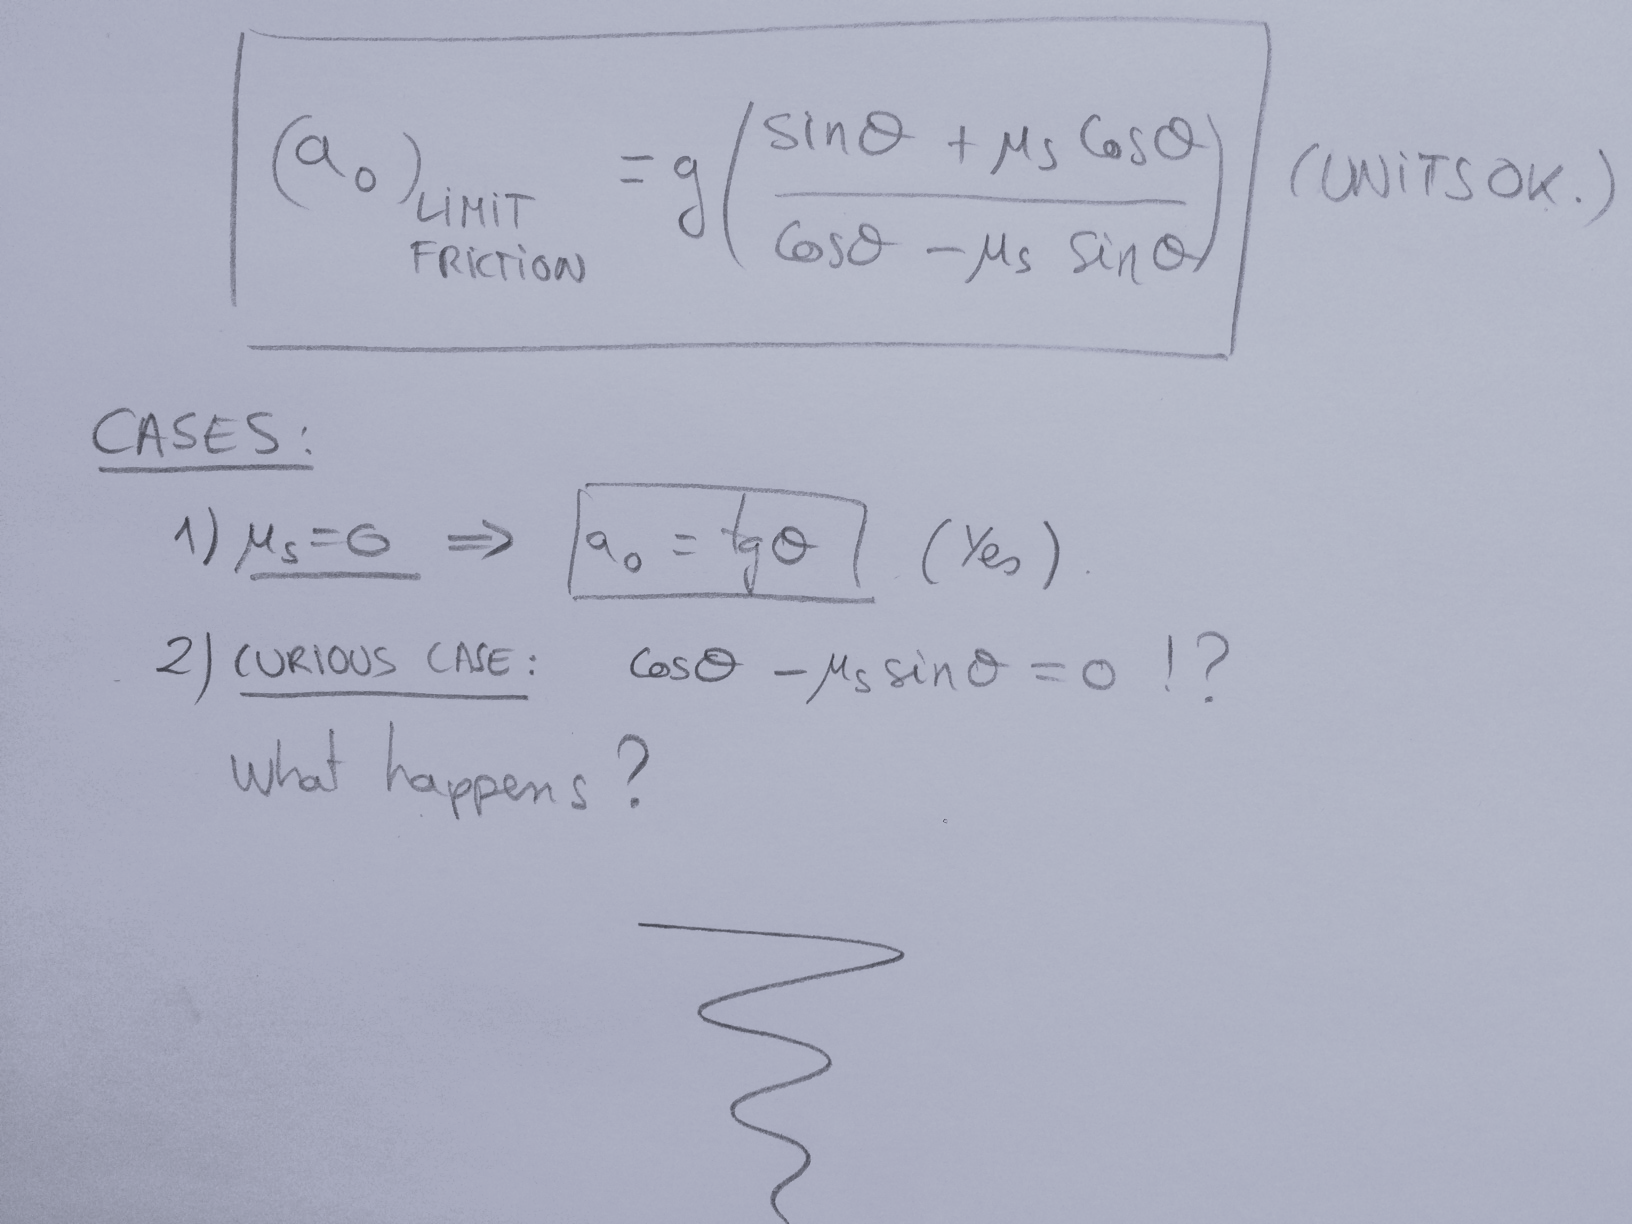 (a₀) LIMIT FRICTION = g( (sinθ + μs cosθ) / (cosθ − μs sinθ) ) (UNITS OK.)
CASES:
1) μs=0 ⇒ a₀ = tgθ (Yes).
2) CURIOUS CASE: cosθ − μs sinθ = 0 !?
What happens?